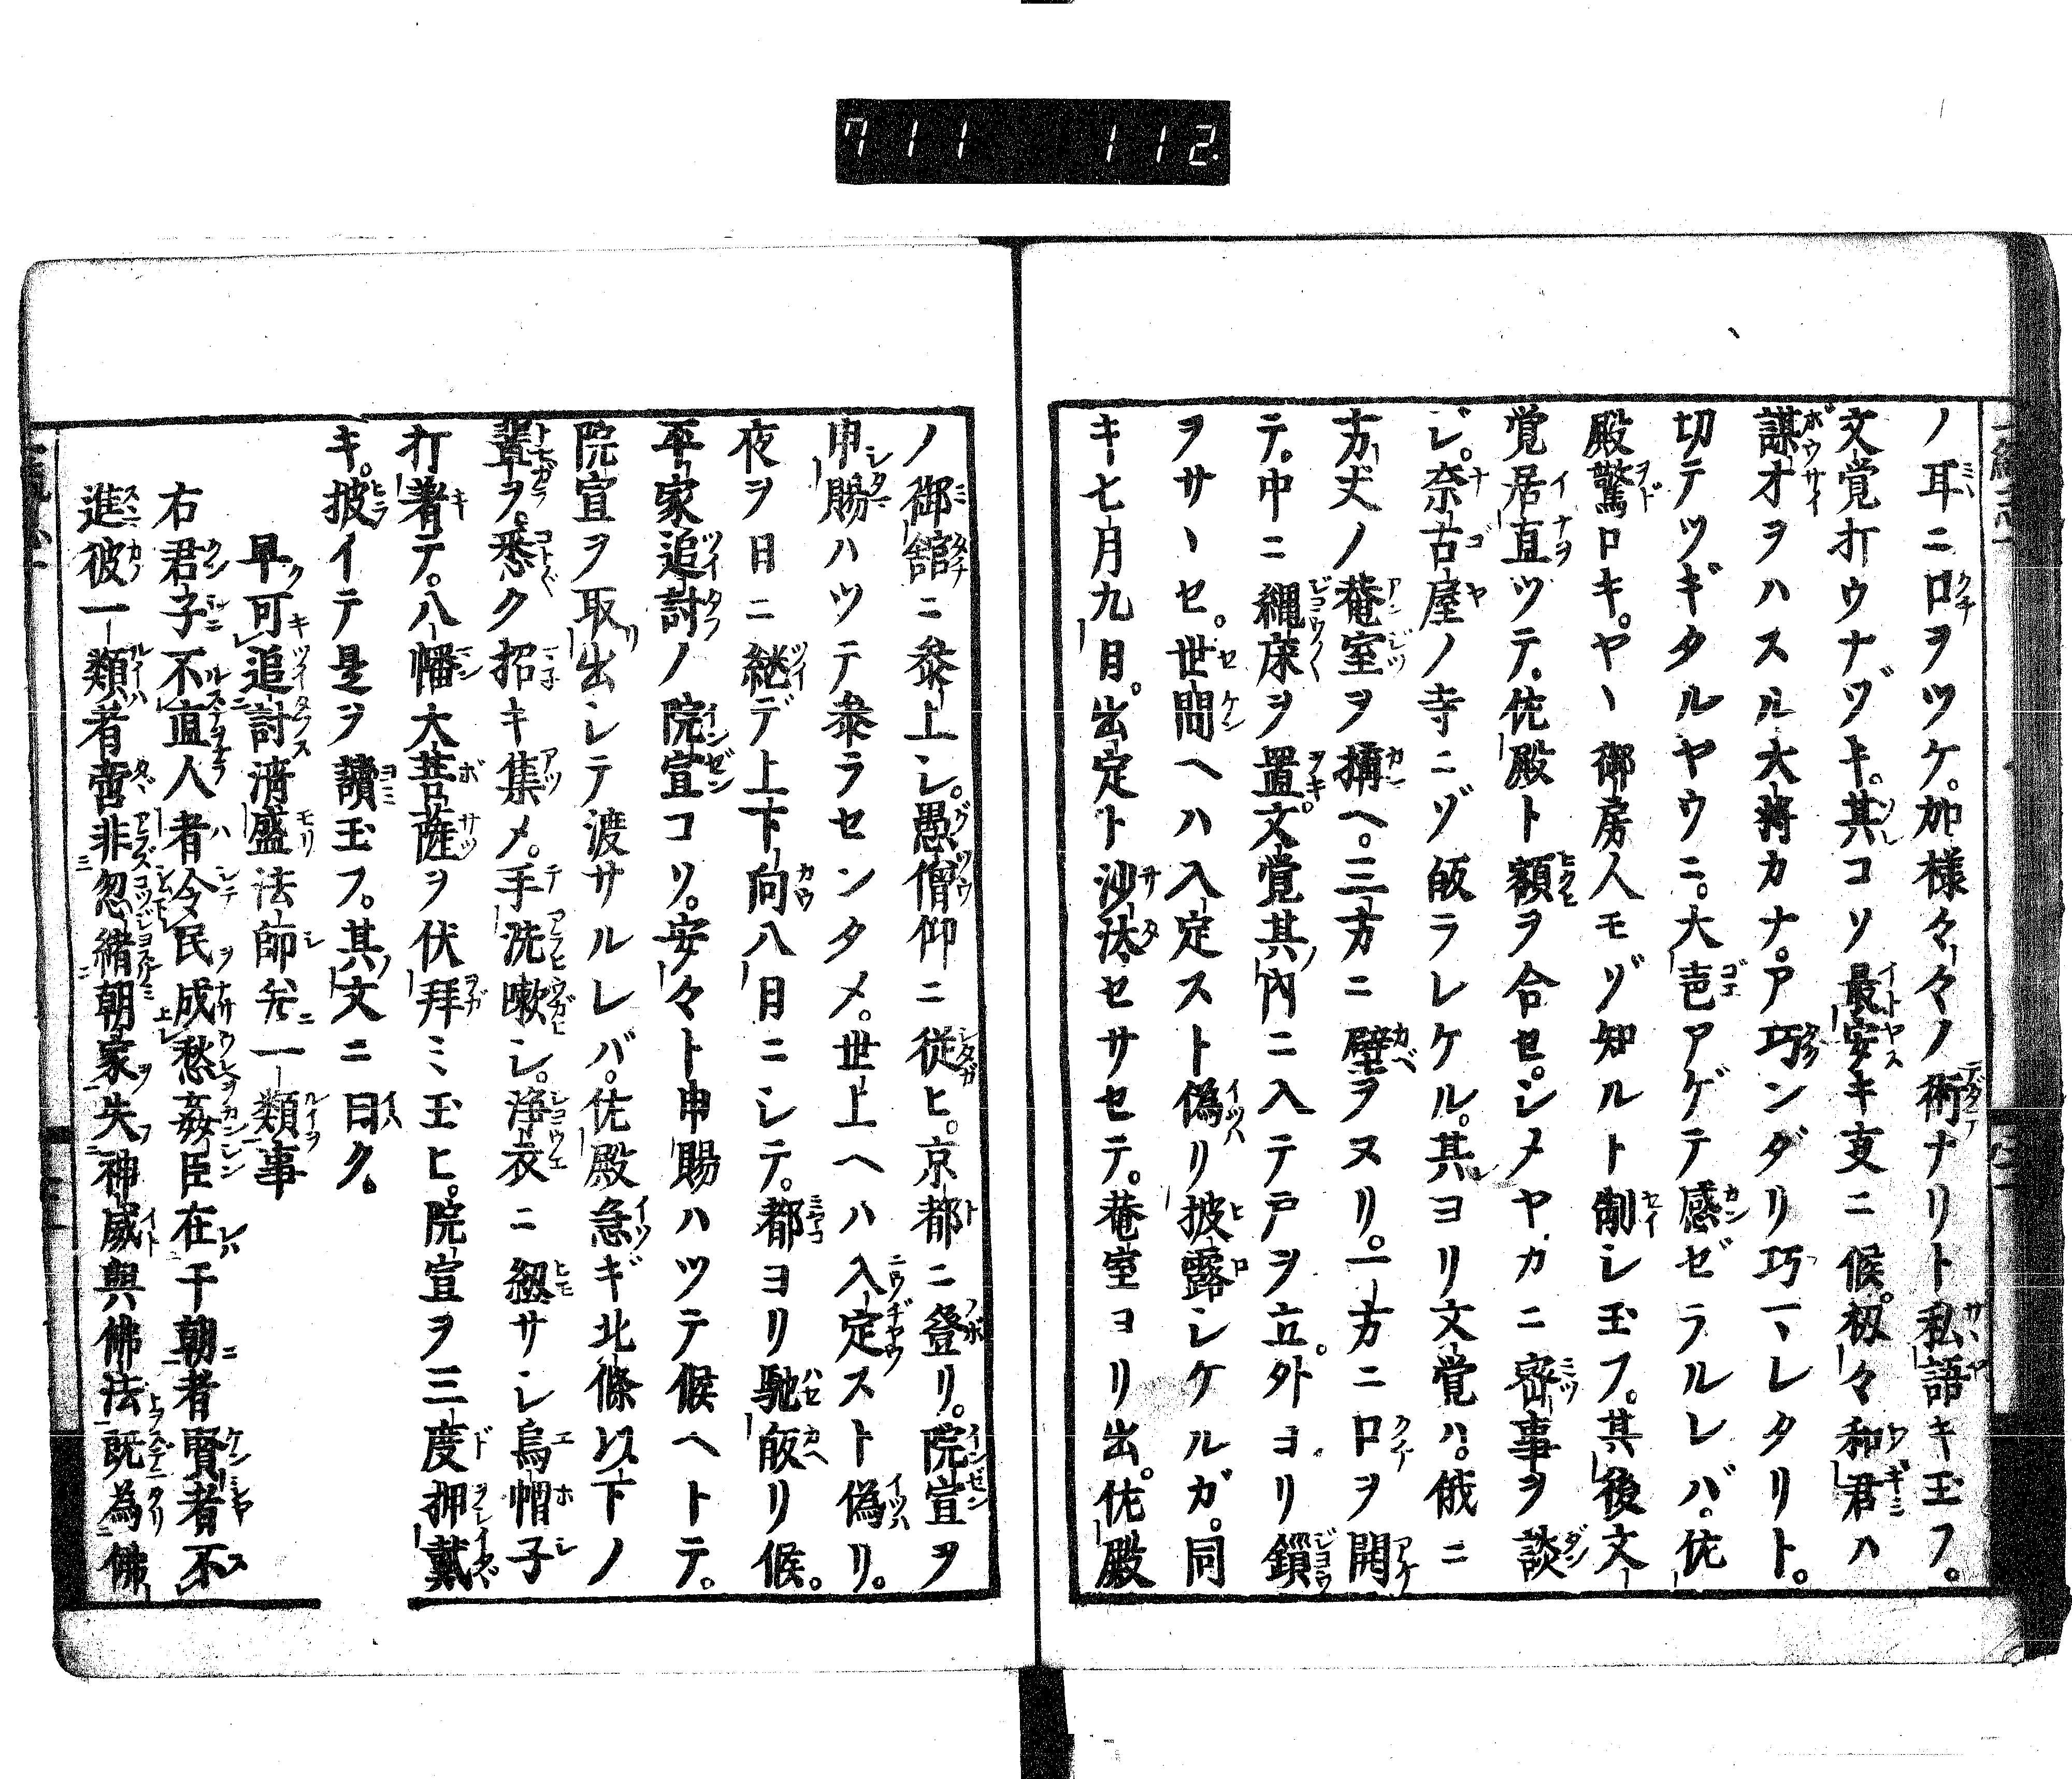 711 112.
ノ耳ニ口ヲツケ。加様々々ノ術ナリト私語キ玉フ。
文覚打ウナヅキ。其コソ最安キ支ニ候。扨々和君ハ
謀才ヲハスル大將カナ。ア巧ンダリ巧ヽレタリト。
切テツギタルヤウニ。大音アゲテ感ゼラルレバ。佐
殿驚ロキ。ヤヽ御房人モゾ知ルト制シ玉フ。其後文
覚居直ツテ。佐殿ト額ヲ合セ。シメヤカニ密事ヲ談
ジ。奈古屋ノ寺ニゾ皈ラレケル。其ヨリ文覚ハ。俄ニ
方丈ノ菴室ヲ搆ヘ。三方ニ壁ヲヌリ。一方ニ口ヲ開
テ。中ニ繩床ヲ置。文覚其内ニ入テ戸ヲ立。外ヨリ鎖
ヲサヽセ。世間ヘハ入定スト偽リ披露シケルガ。同
キ七月九日。出定ト沙汰セサセテ。菴室ヨリ出。佐殿
ノ御舘ニ參上シ。愚僧仰ニ従ヒ。京都ニ登リ。院宣ヲ
申賜ハツテ參ラセンタメ。世上ヘハ入定スト偽リ。
夜ヲ日ニ継デ上下向八日ニシテ。都ヨリ馳皈リ候。
平家追討ノ院宣コリ。安々ト申賜ハツテ候ヘトテ。
院宣ヲ取出シテ渡サルレバ。佐殿急ギ北條以下ノ
輩ヲ。悉ク招キ集メ。手洗嗽シ。浄衣ニ紐サシ烏帽子
打著テ。八幡大菩薩ヲ伏拜ミ玉ヒ。院宣ヲ三度押戴
キ。披イテ是ヲ讀玉フ。其文ニ曰ク。
早可追討清盛法師并一類事
右君子不直人者令民成愁姦臣在于朝者賢者不
進彼一類者啻非忽緒朝家失神威與佛法既為佛